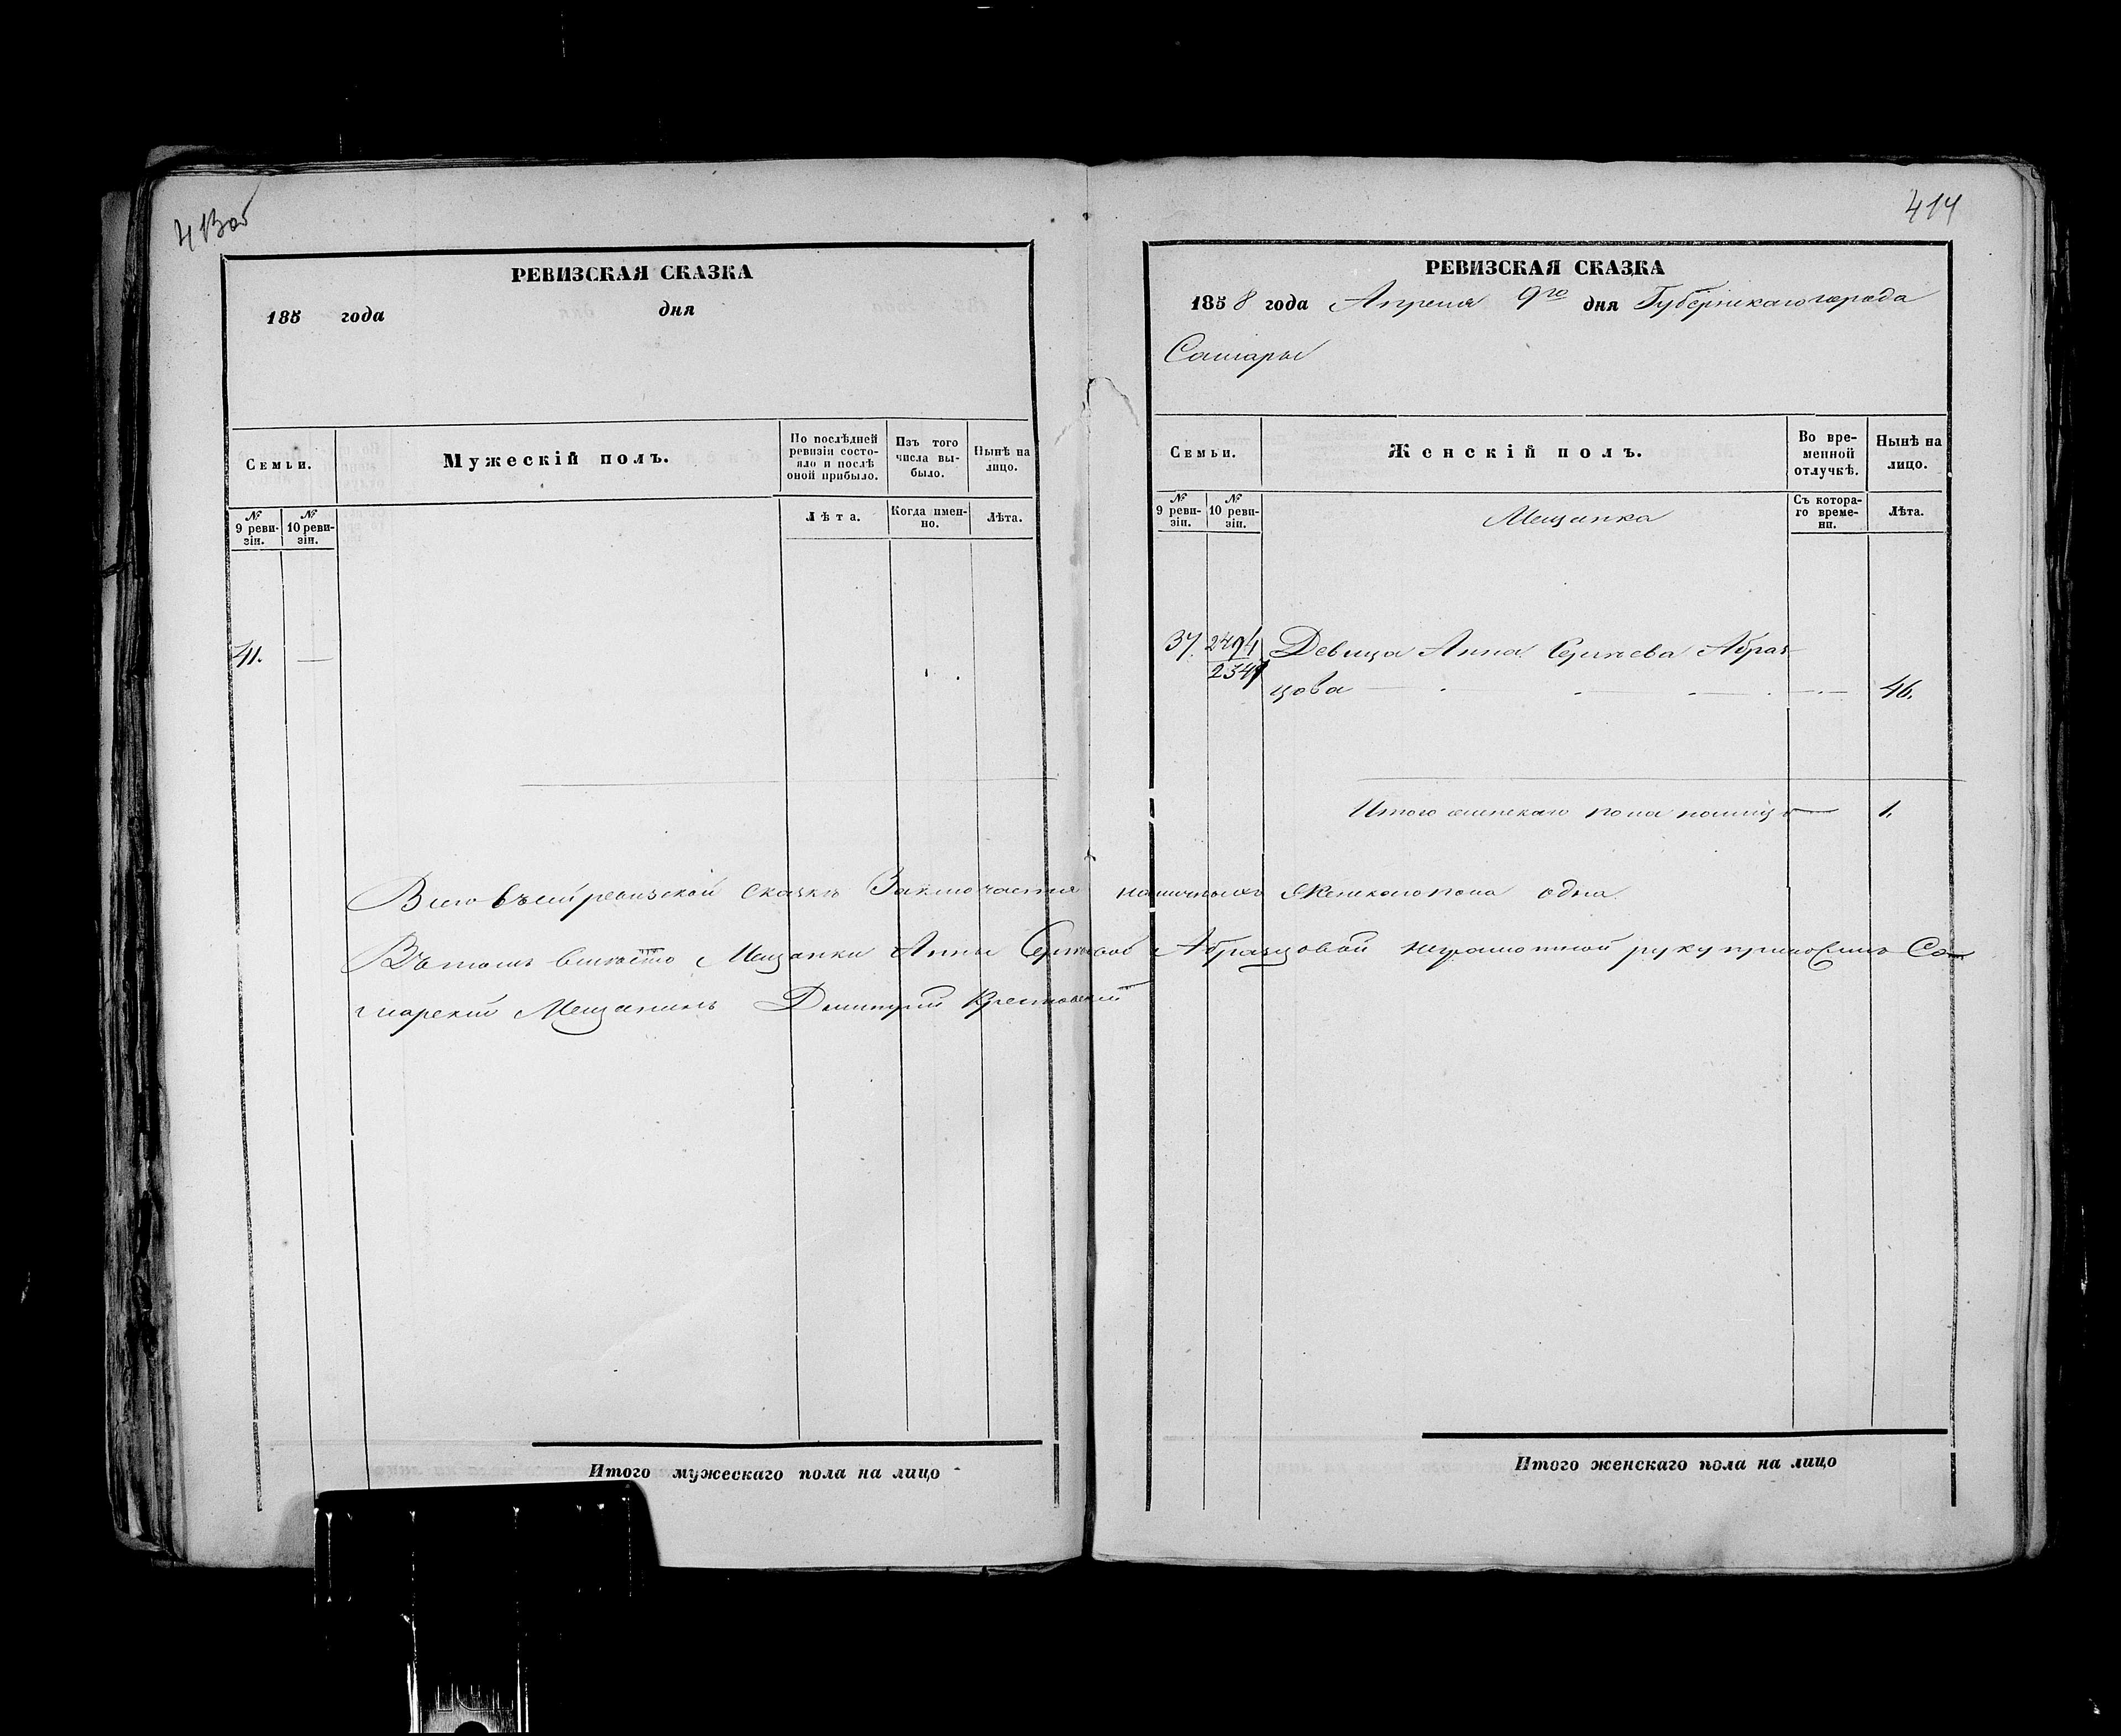 413об
РЕВИЗСКАЯ СКАЗКА
185 года дня
Семьи.
Мужескій полъ.
По послѣдней ревизіи состояло и послѣ оной прибыло.
Изъ того числа выбыло.
Нынѣ на лицо.
№ 9 ревизіи.
№ 10 ревизіи.
Лѣта.
Когда именно.
Лѣта.
41. —
Всего въ сей ревизской сказкѣ Заключается наличныхъ Женского пола одна.
Въ томъ вместо Мещанки Анны Сергѣевой Абразцовой неграмотной руку приложилъ Са-
марский Мещанинъ Дмитрий
Итого мужескаго пола на лицо
414
РЕВИЗСКАЯ СКАЗКА
1858 года Апреля 9го дня Губернскаго города
Самары
Семьи.
Женскій полъ.
Во временной отлучкѣ.
Нынѣ на лицо.
№ 9 ревизіи.
№ 10 ревизіи.
Мещанка
Съ котораго времени.
Лѣта.
37. 2494 Девица Анна Сергѣева Абраз-
2347 цова — — 46.
Итого женскаго пола налицо — 1.
Итого женскаго пола на лицо